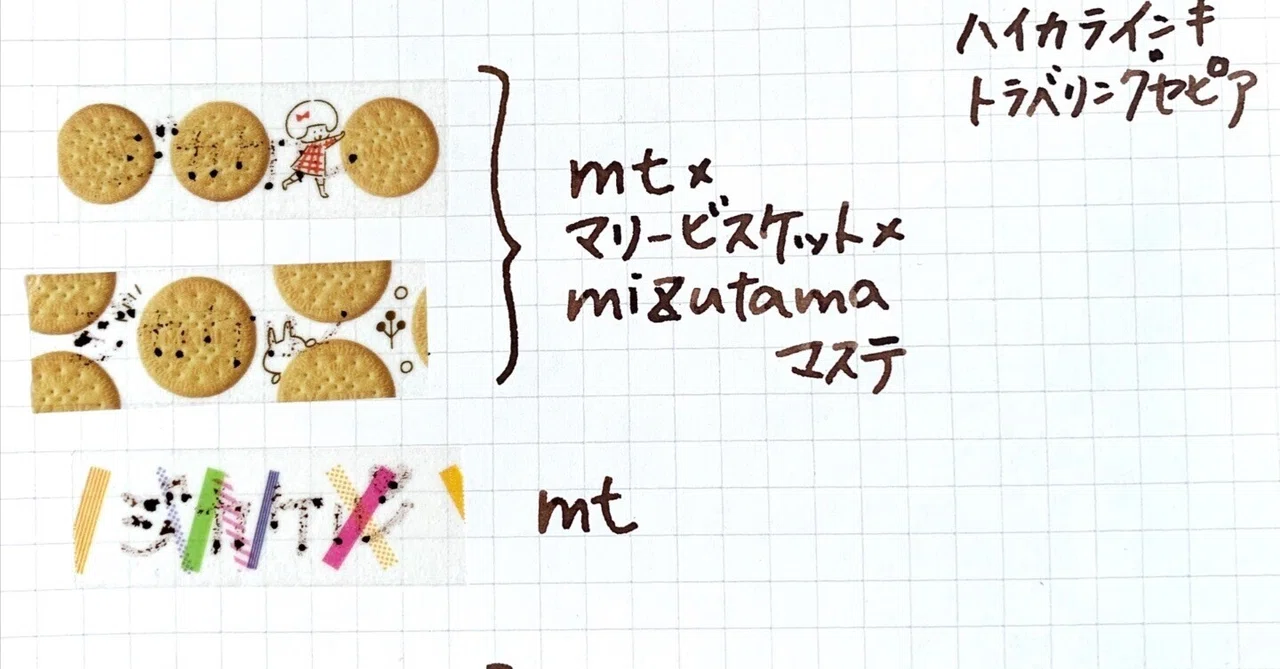 ハイカライニキ
トラベリングセピア
mt×
マリービスケット×
mizutama
マステ
mt